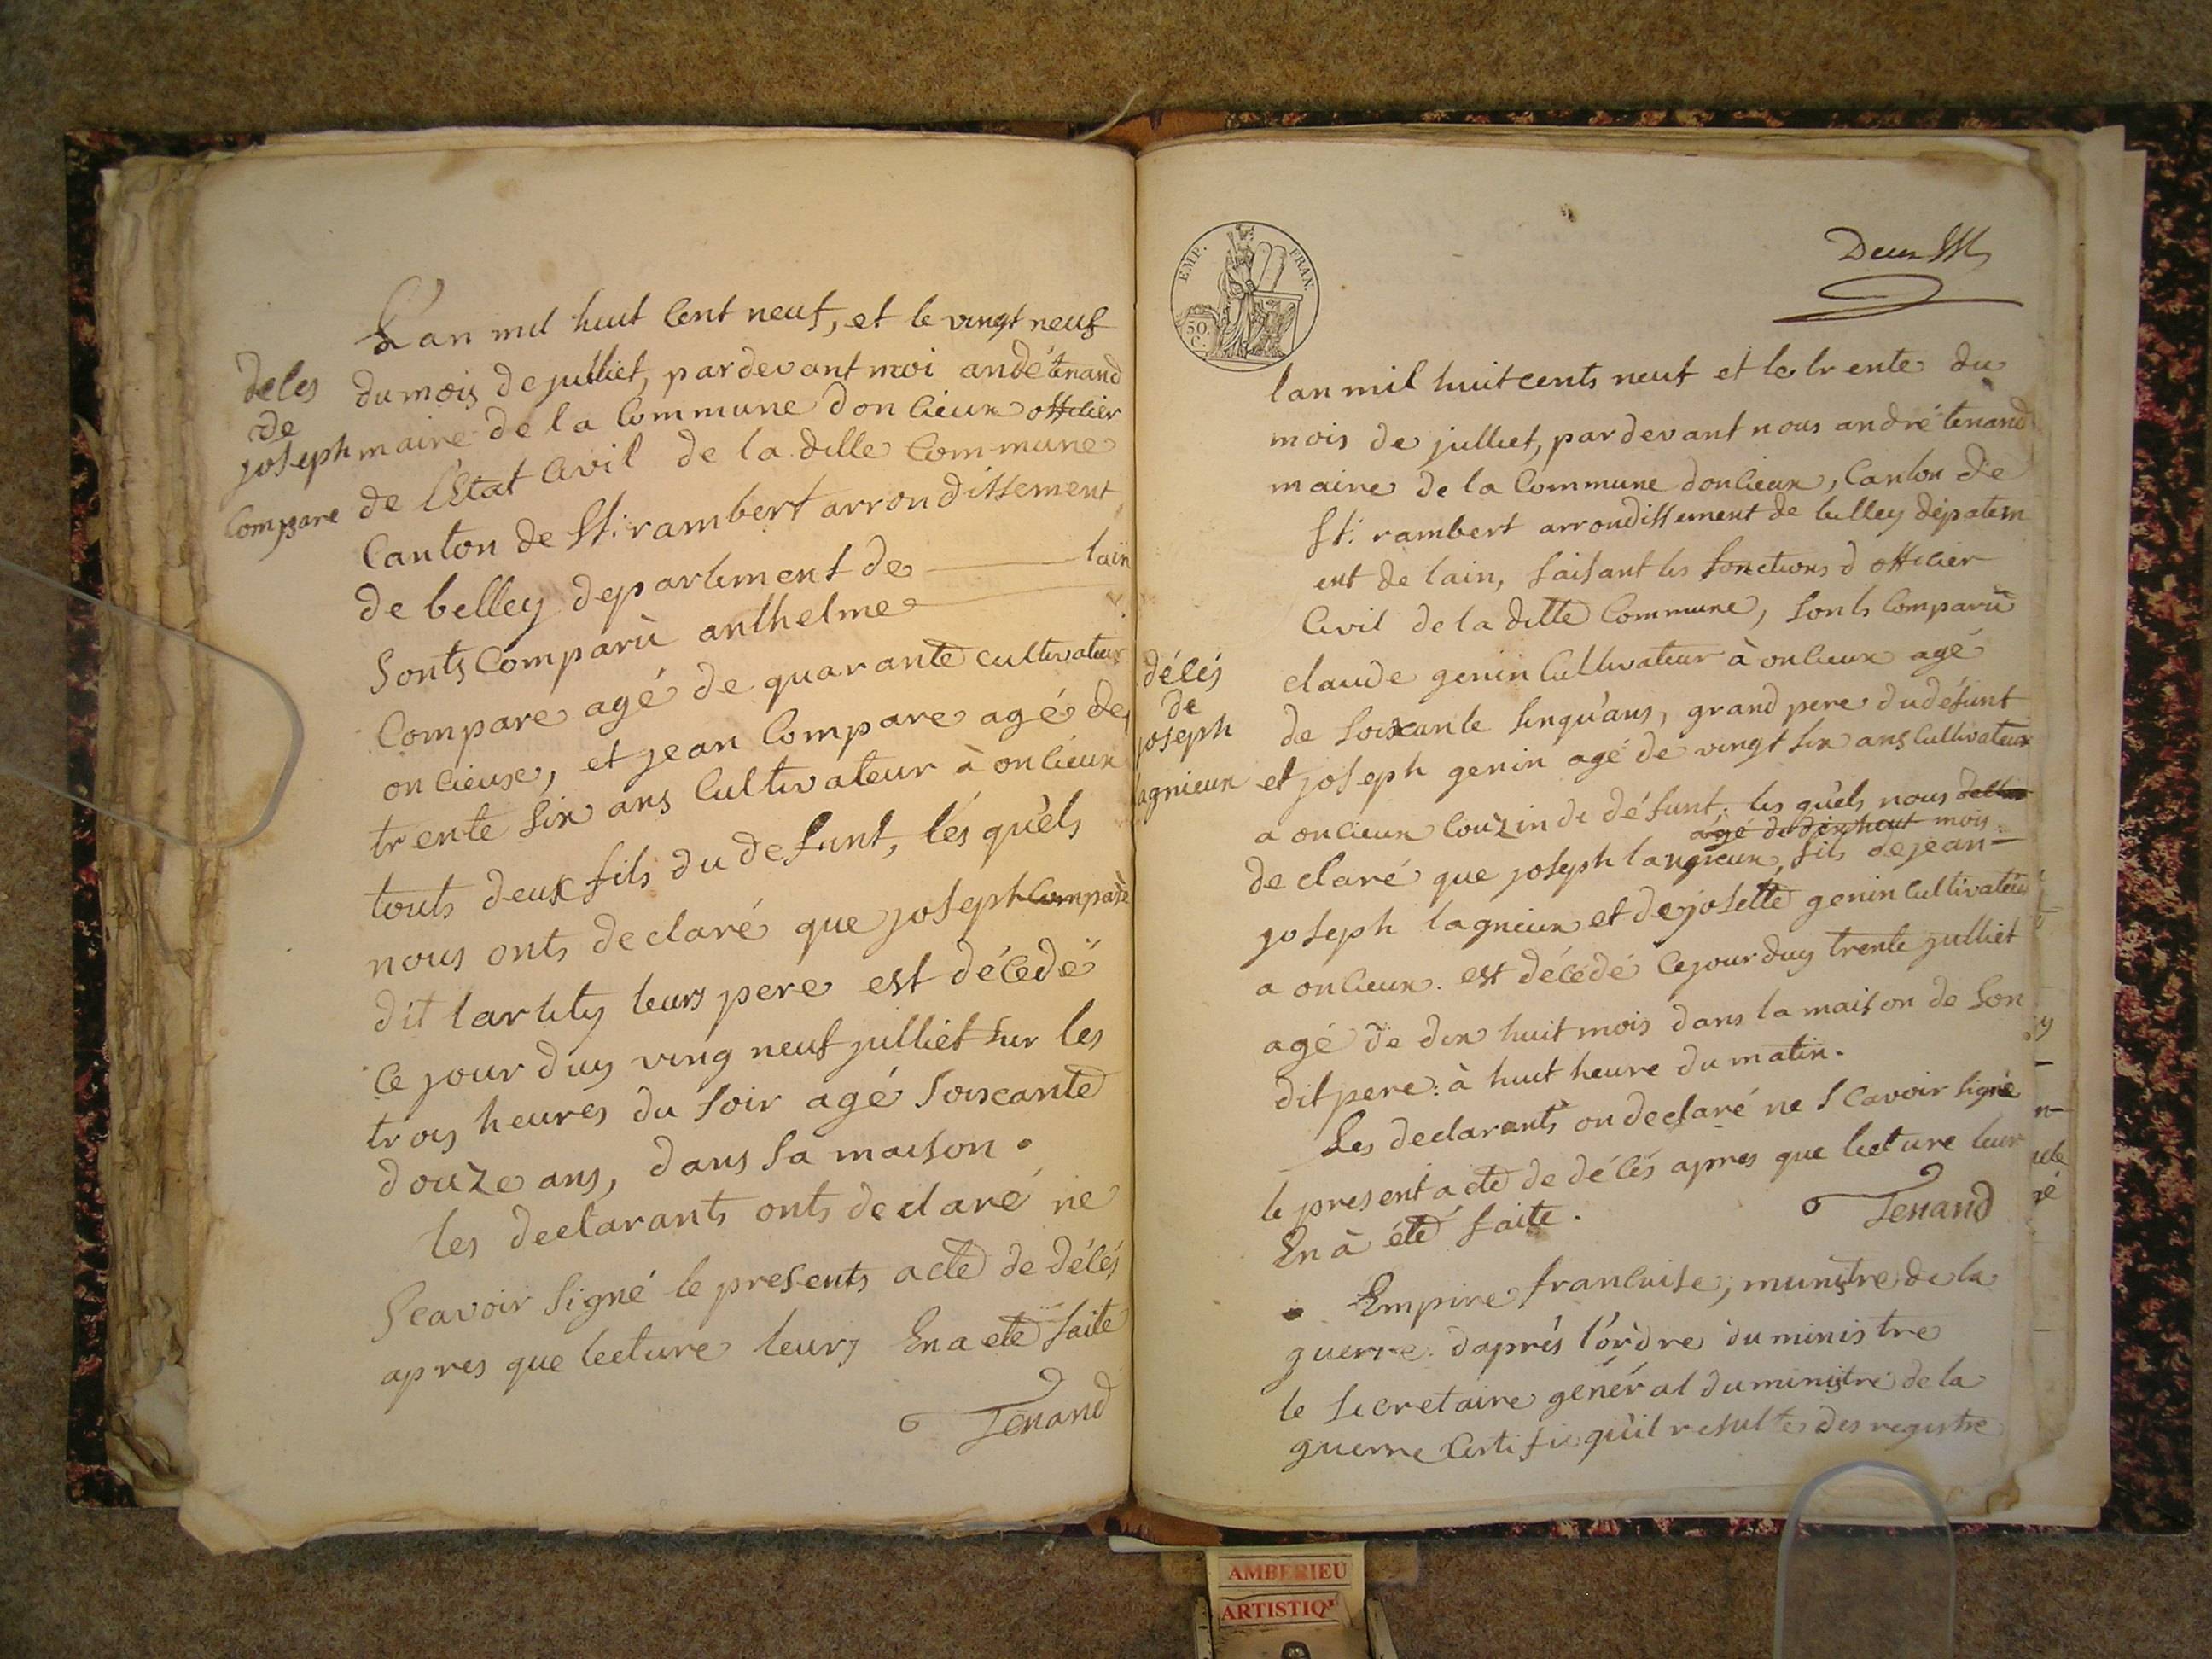 Lan mil huit Cent neuf, et le vingt neuf
deces
de
joseph
Compare
du mois de julliet, pardevant moi andé tenand
maire de la Commune doncieux officier
de l'Etat Civil de la ditte Commune
Canton de St. rambert arrondissement
de belley departement de lain
Sonts Comparù anthelme
Compare agé de quarante cultivateur
oncieux, et jean Compare agé de
trente six ans Cultivateur à oncieux
touts deux fils du defunt, lés quèls
nous onts declaré que joseph Compare
dit leurs pere est décedé
Ce jour duy ving neuf julliet sur les
trois heures du soir agé soixante
douze ans, dans sa maison.
les declarants onts declaré ne
Scavoir signé le presents acte de décés
apres que lecture leurs En a eté faite
Tenand
EMP. FRAN.
50.
C.
Deux
lan mil huit cents neuf et le trente du
mois de julliet, pardevant nous andré tenand
maire de la Commune doncieux, Canton de
St. rambert arrondissement de belley départem
ent de lain, faisant les fonctions d officier
Civil de la ditte Commune, sonts Comparù
décés
de
joseph
lagnieux
claude genin Cultivateur à oncieux agé
de soixante sinqu'ans, grand pere du défunt
et joseph genin agé de vingt six ans Cultivateur
a oncieux Couzin de défunt: les quèls nous
agé de dix huit mois
declaré que joseph langnieux, fils de jean
joseph lagnieux et de josette genin Cultivateur
a oncieux. est décédé Ce jour duy trente julliet
agé de dix huit mois dans la maison de son
dit pere: à huit heure du matin.
Les declarants on declaré ne Scavoir signé
le present acte de décés apres que lecture leur
En à été faite.
Tenand
Empire francaise; munistre de la
guerre. daprés l'ordre du ministre
le secretaire général du ministre de la
guerre Certifie qu'il resulte des registre
AMBERIEU
ARTISTIQ